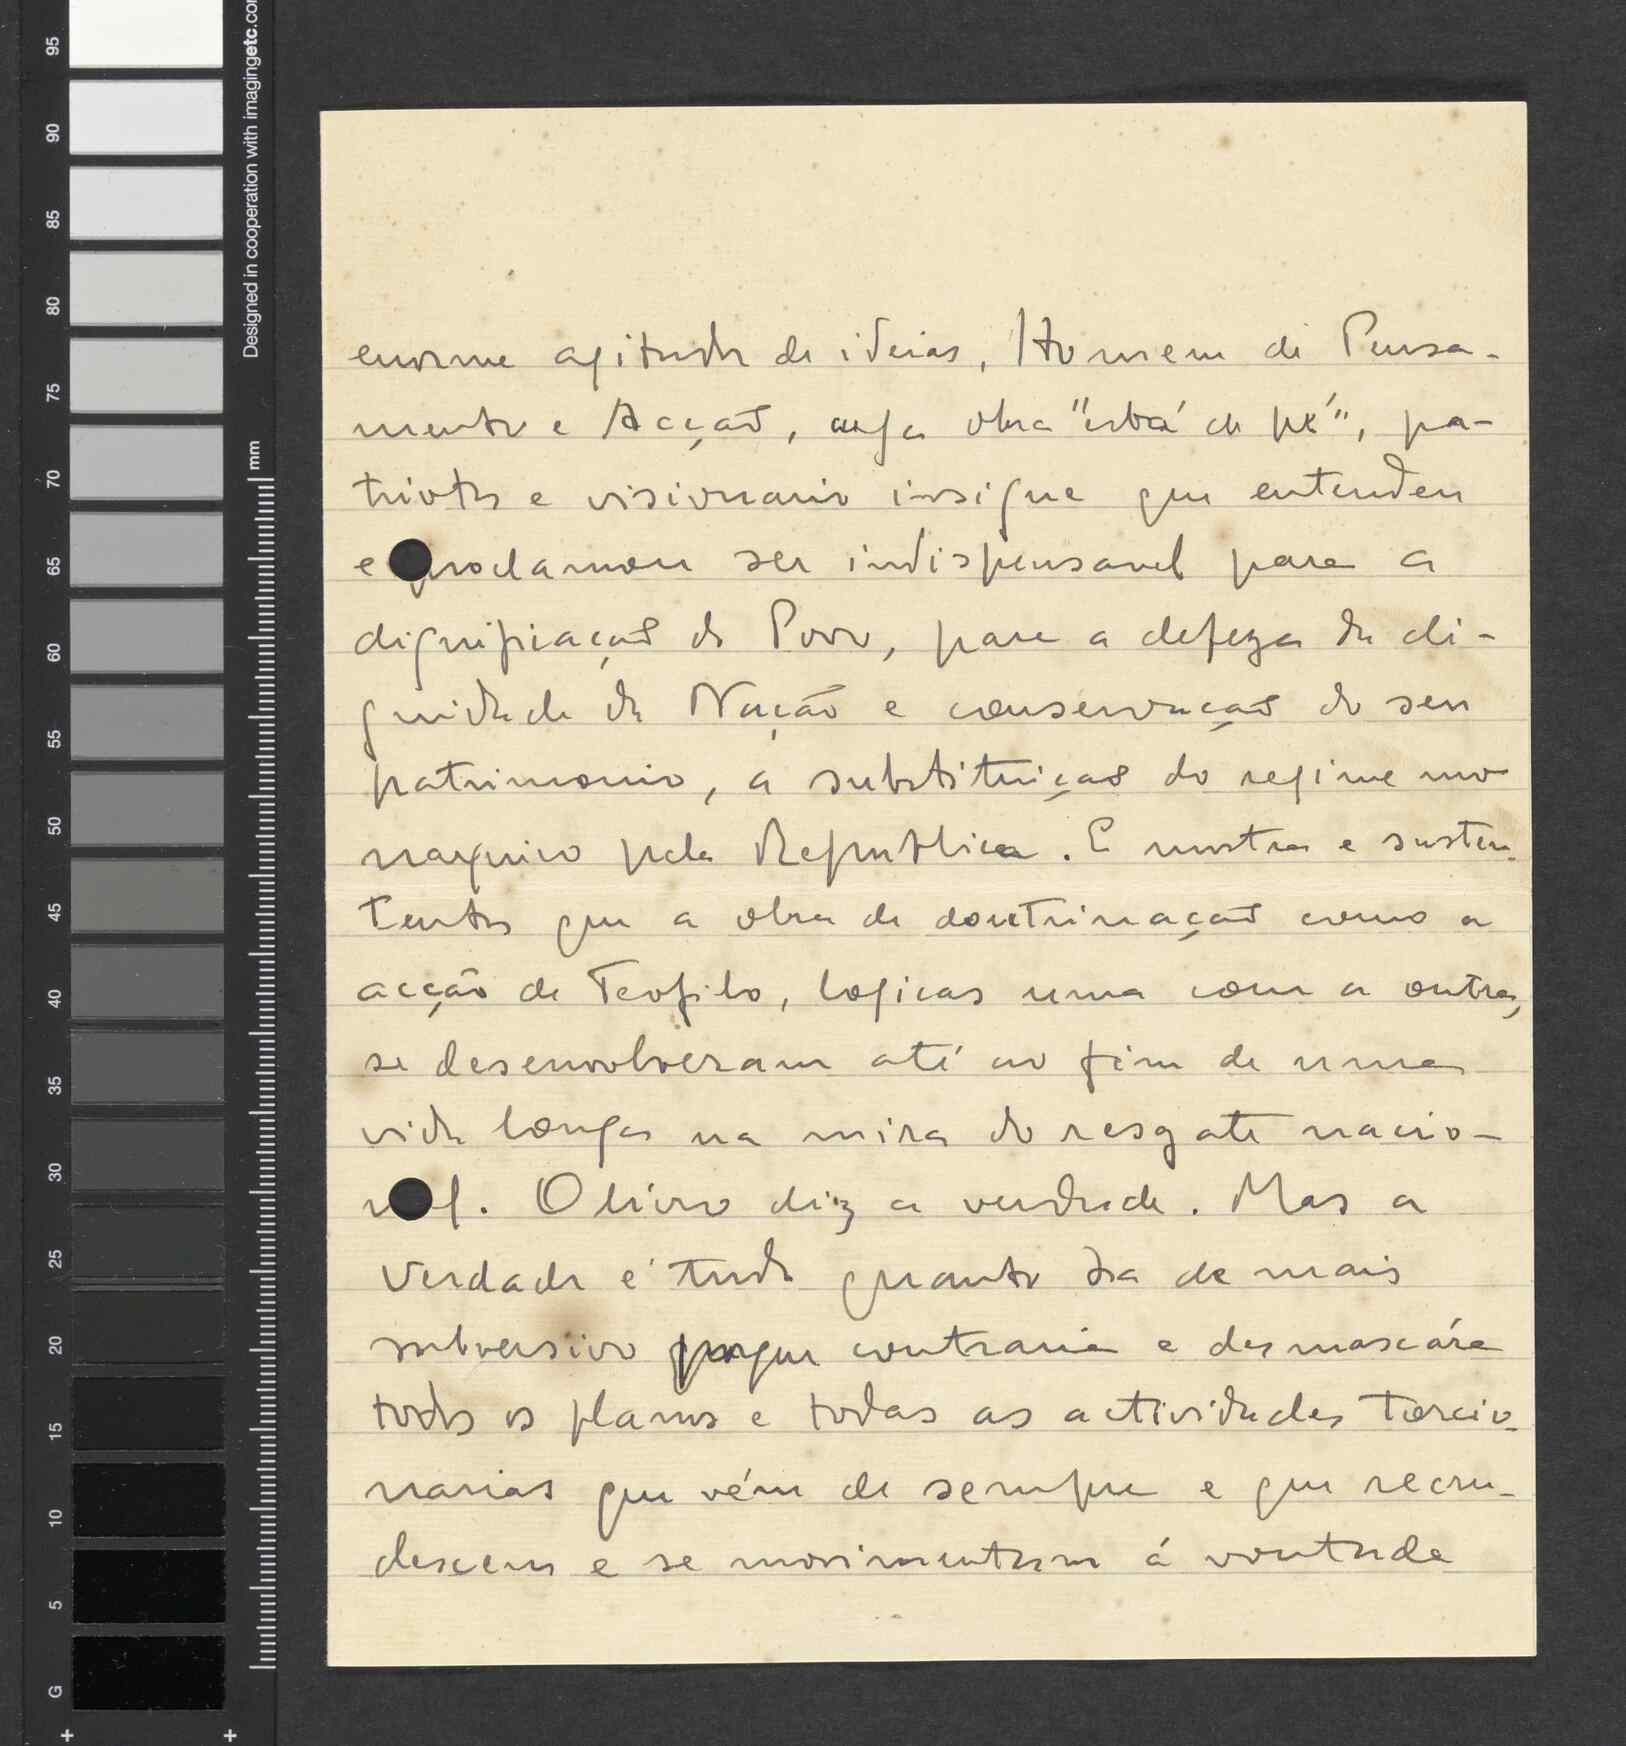 95
90
85
80
75
70
65
60
55
50
45
40
35
30
25
20
15
10
5
G
mm
Designed in cooperation with imagingetc.co
enorme agitador de ideias, Homem de Pensa-
mento e Acção, cuja obra "está de pé", pa-
triota e visionario insigne que entendeu
e proclamou ser indispensavel para a
dignificação do Povo, para a defeza da di-
gnidade da Nação e conservação do seu
patrimonio, a substituição do regime mo
narquico pela Republica. E mostra e susten-
tenta que a obra de doutrinação como a
acção de Teofilo, logicas uma com a outra,
se desenvolveram até ao fim de uma
vida longa na mira do resgate nacio-
nal. O livro diz a verdade. Mas a
Verdade é tudo quanto ha de mais
subversivo porque contraria e desmascára
todos os planos e todas as actividades torcio-
narias que vém de sempre e que recru-
descem e se movimentam á vontade